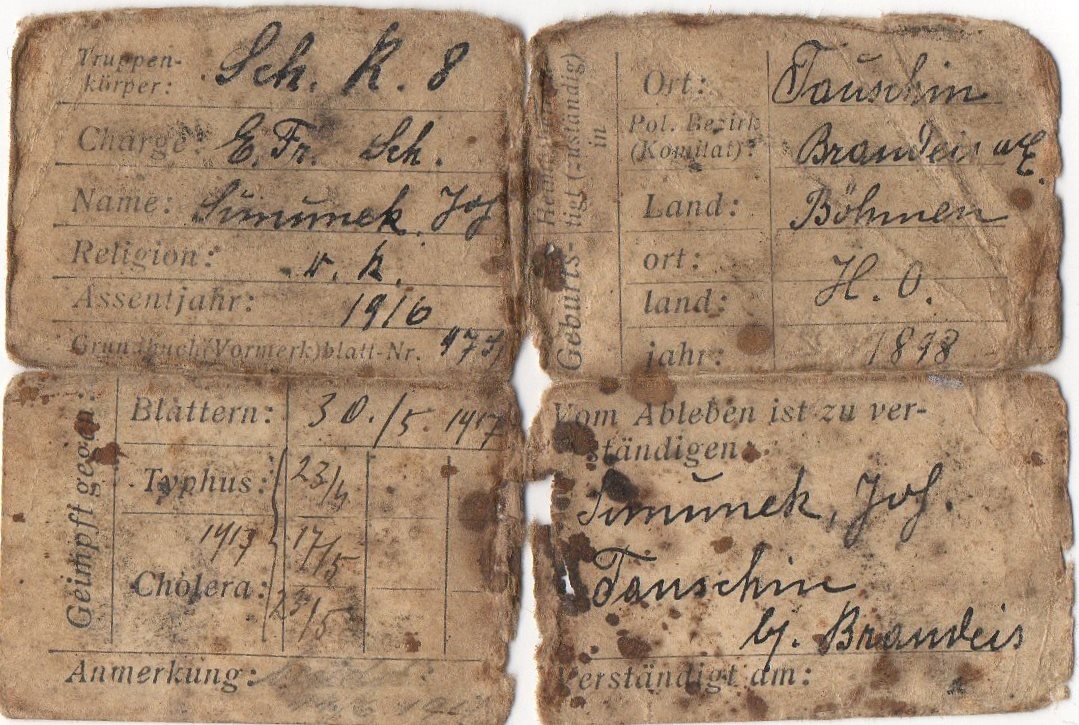 Truppen-
körper: Sch. R. 8
Charge: E. Fr. Sch.
Name: Simunek, Jos
Religion: r. k.
Assentjahr: 1916
Grundbuch(Vormerk)blatt-Nr.
Heimatberechtigt (zuständig) in
Ort: Tauschin
Pol. Bezirk
(Komitat): Brandeis a/E.
Land: Böhmen
Geburts-
ort: H. O.
land:
jahr: 1898
Geimpft gegen
Blattern: 30./5. 1917
Typhus: 23/4
1917 17/5
Cholera: 25/5
Anmerkung:
Vom Ableben ist zu ver-
ständigen:
Simunek, Jos.
Tauschin
bj. Brandeis
Verständigt am: